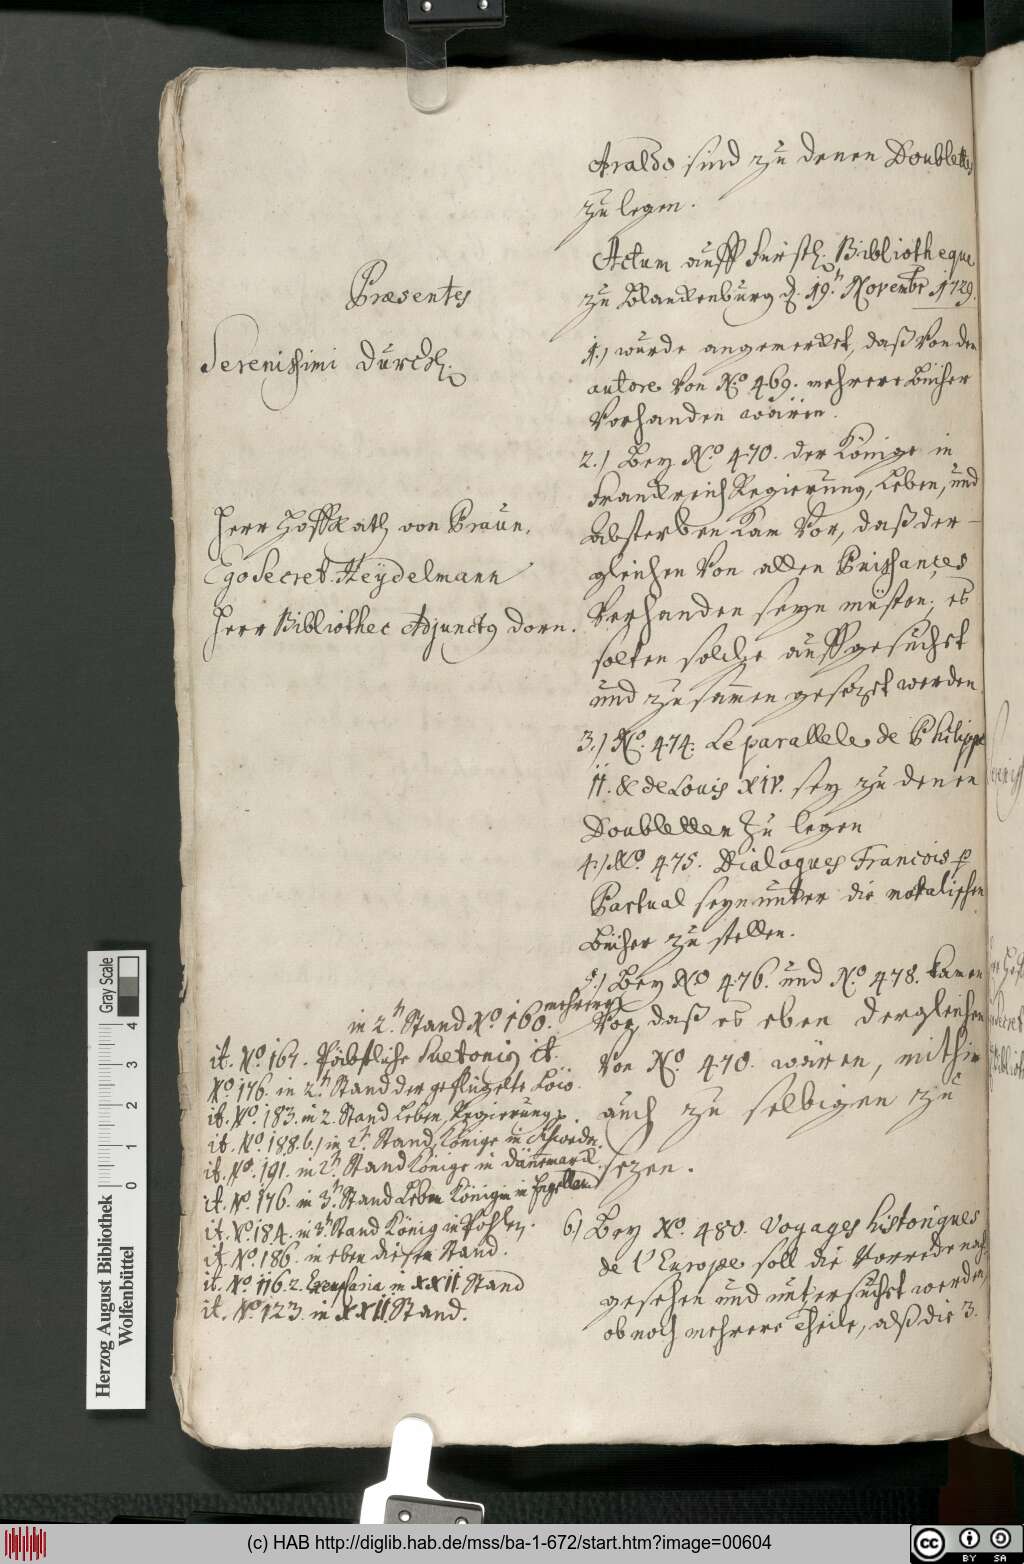 Araldo sind zu denen Doubletten
zu legen.
Actum auff Fürstl. Bibliotheque
zu Blanckenburg d. 19.n Novembr 1729.
Præsentes
Serenissimi Durchl.
Herr Hoffrath von Praun.
Ego Secret. Heydelmann
Herr Bibliothec Adjunctus Dorn.
1.) wurde angemercket, daß von dem
autore von No. 469. mehrere Bücher
vorhanden wären.
2.) Bey No. 470. der Könige in
Franckreich Regierung, Leben, und
Absterben kam vor, daß der-
gleichen von allen Puissances
vorhanden seyn müsten, es
solten solche auffgesucht
und zusammen gesetzt werden.
3.) No. 474. Le parallele de Philippe
II. & de Louis XIV. sey zu denen
Doubletten zu legen
4.) No. 475. Dialogues Francois p
seyn unter die moralischen
Bücher zu stellen.
5.) Bey No 476. und No. 478. kamen
vor, daß es eben dergleichen
von No. 470. wären, mithin
auch zu selbigen zu
setzen.
6) Bey No. 480. Voyages historiques
de l'Europe soll die Vorrede nach
gesehen und untersucht werden,
ob noch mehrere Theile, alß die 3.
in 2.n Stand No. 160.
it. No. 167. Päbstliche Suetonius it.
No. 176. in 2.n Stand der geflügelte Löw.
it. No. 183. in 2. Stand Leben, Regierung
it. No. 188. b.) in 2.n Stand, Könige in Schwede.
it. No. 191. in 2.n Stand Könige in Dännemarck.
it. No. 176. in 3.n Stand Leben Königin in Engellan
it. No. 184. in 3.n Stand König in Pohlen.
it No. 186. in eben diesem Stand.
it. No. 116. 2. Exemplaria in XXII Stand
it. No. 123. in XXII. Stand.
Gray Scale
4
3
2
1
0
Herzog August Bibliothek
Wolfenbüttel
(c) HAB http://diglib.hab.de/mss/ba-1-672/start.htm?image=00604
cc BY SA